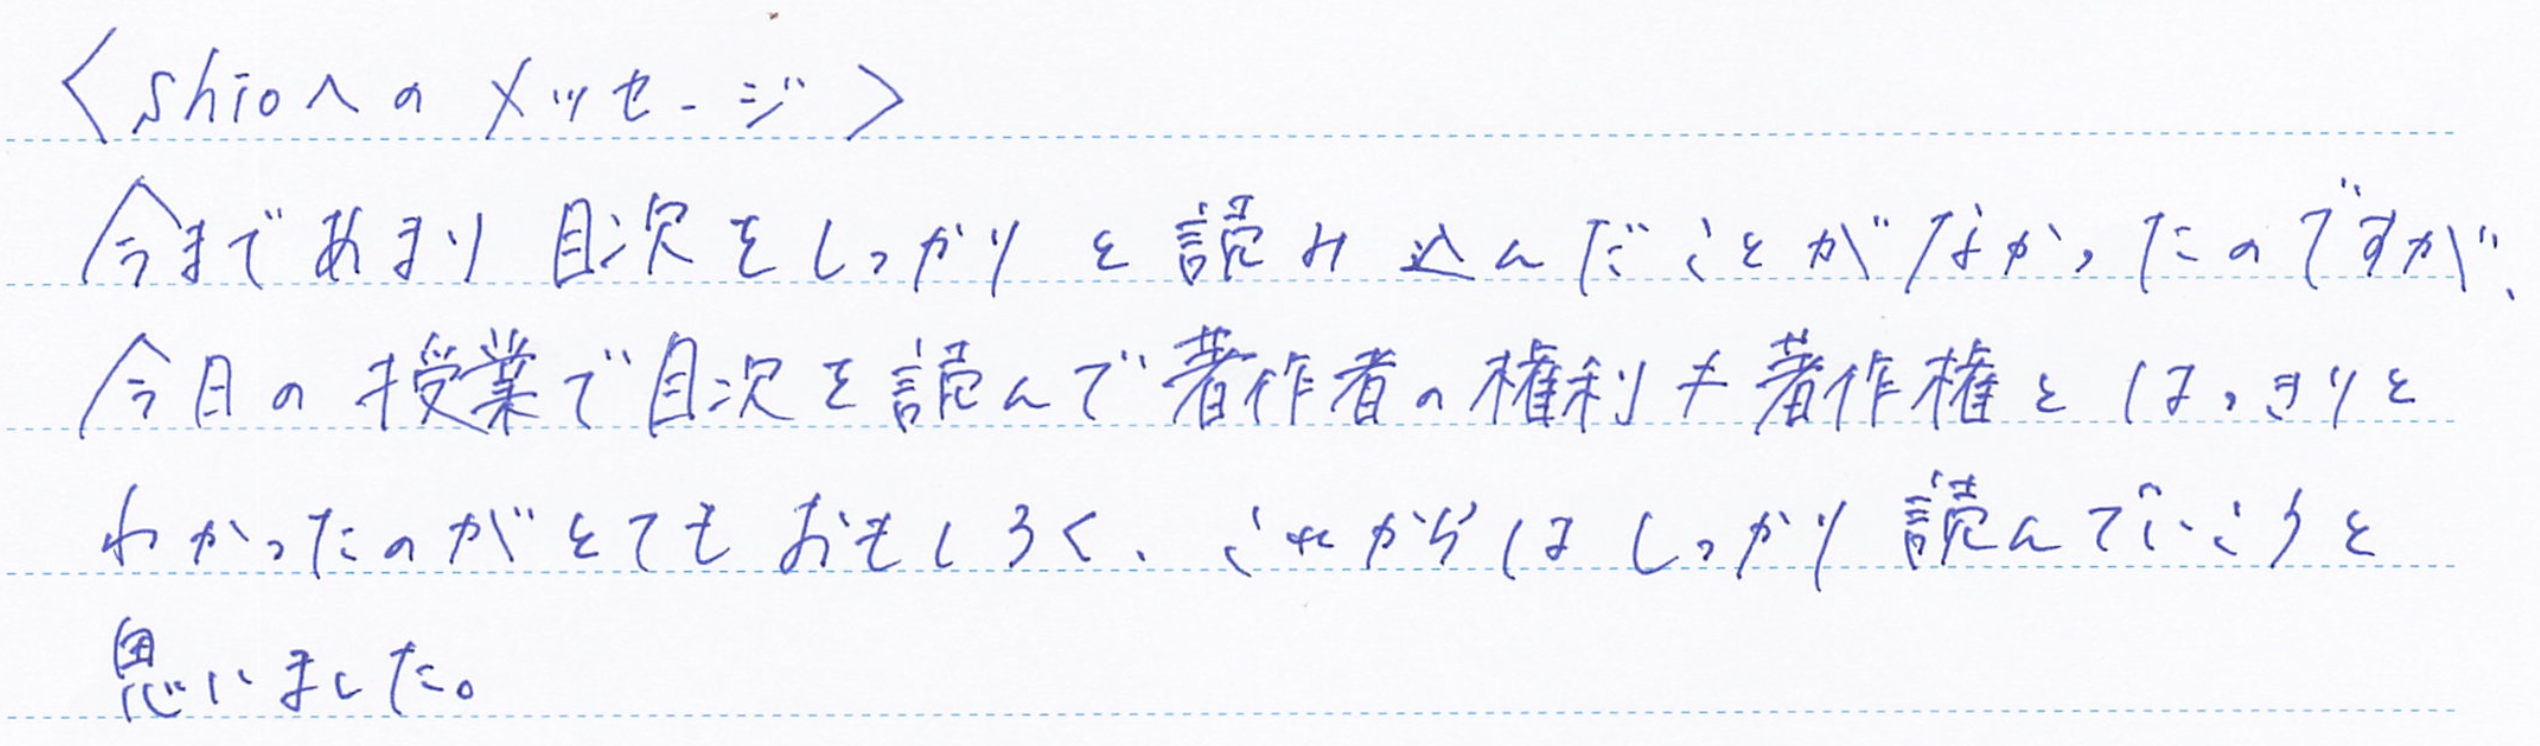 〈shioへのメッセージ〉
今まであまり目次をしっかりと読み込んだことがなかったのですが、
今日の授業で目次を読んで著作者の権利≠著作権とはっきりと
わかったのがとてもおもしろく、これからはしっかり読んでいこうと
思いました。